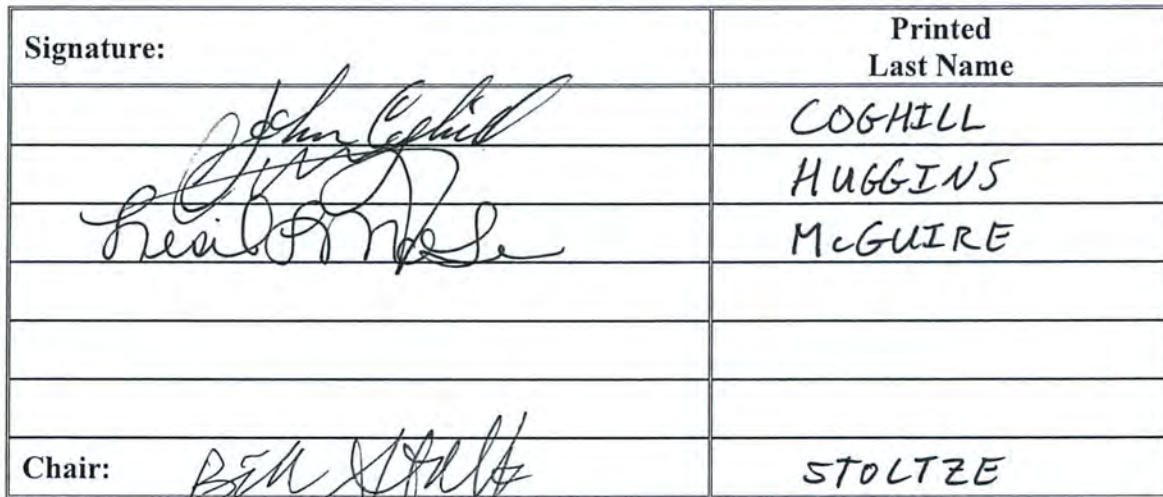 Signature: Printed
Last Name
John Coghill COGHILL
HUGGINS
McGUIRE
Chair: Bill Stoltze STOLTZE